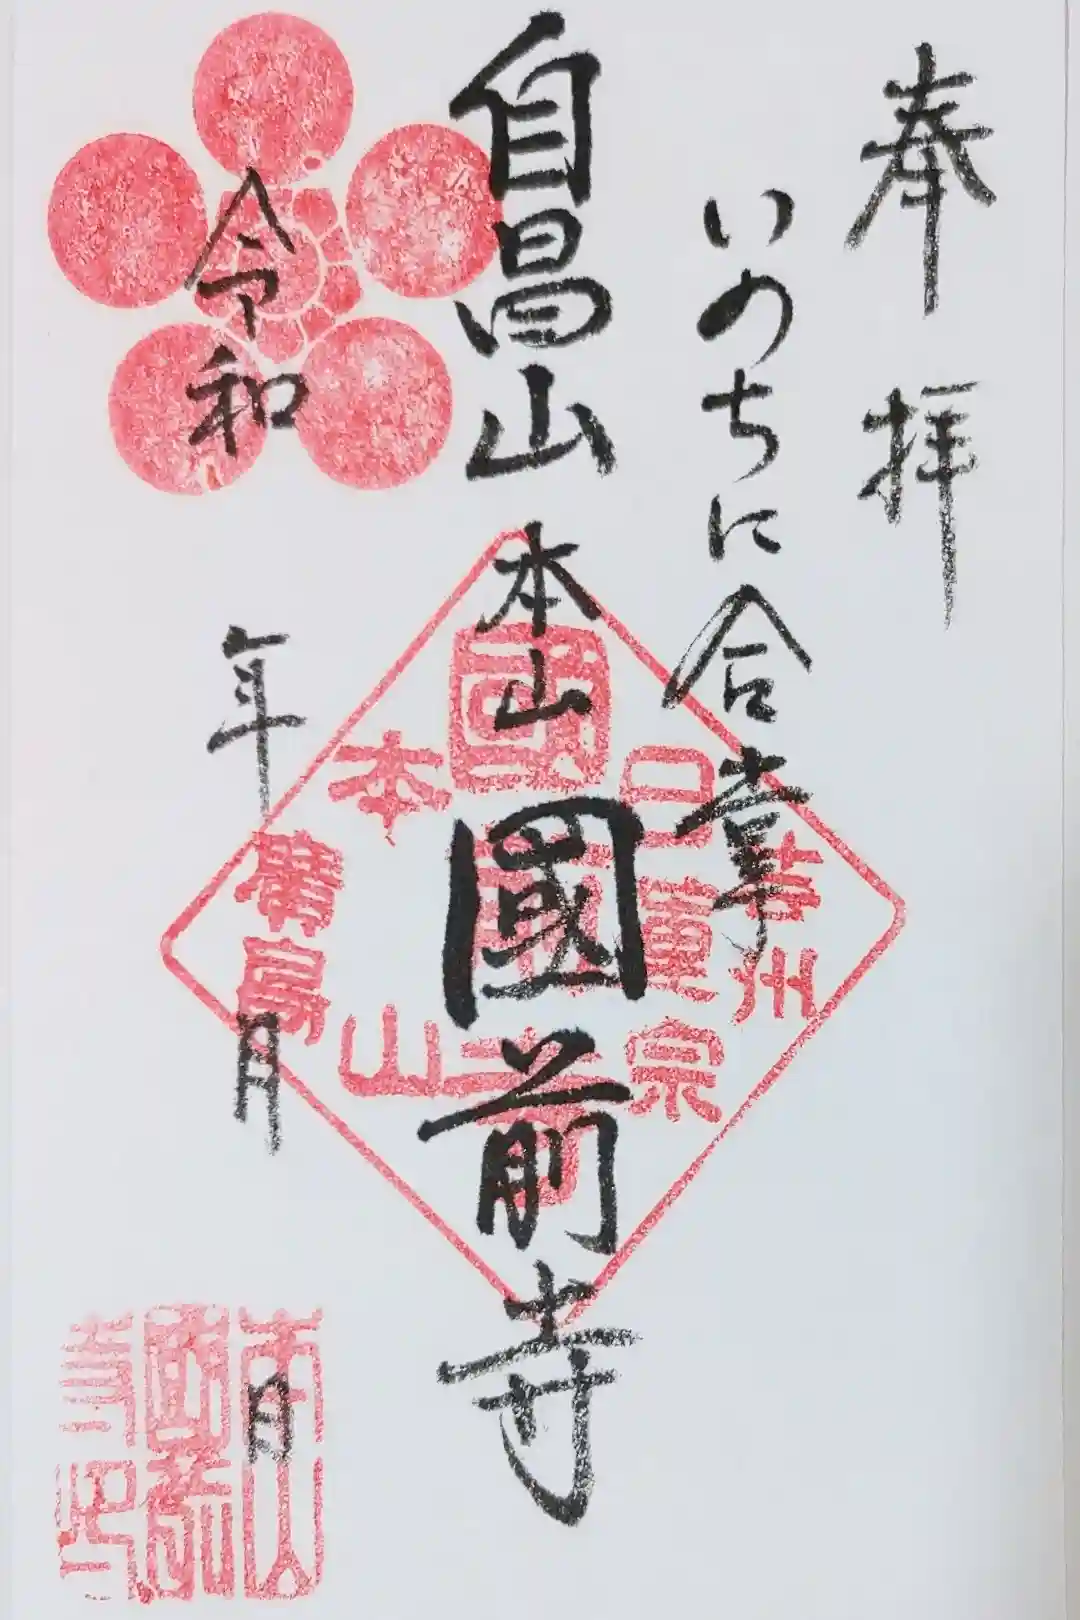 奉拝
いのちに合掌
自昌山
本山
國前寺
令和 年 月 日
藝州
廣島
日蓮宗
本山
國前寺
本山
國前
寺印